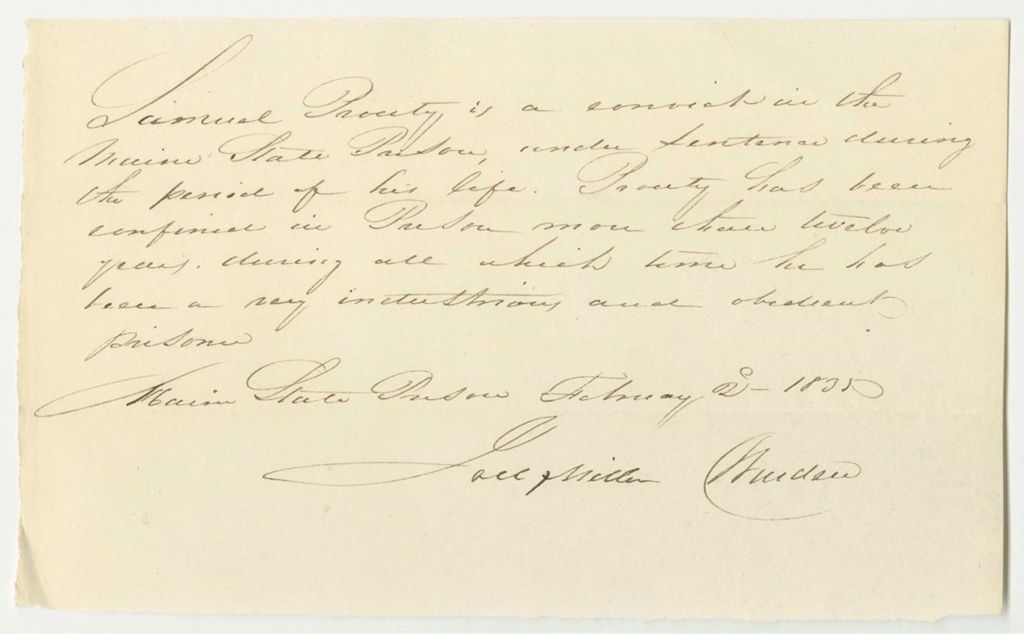 Samuel Prouty is a convict in the
Maine State Prison, under sentence during
the period of his life. Prouty has been
confined in Prison more than twelve
years. during all which time he has
been a very industrious and obedient
prisoner
Maine State Prison February 2d - 1835
Joel Miller Warden